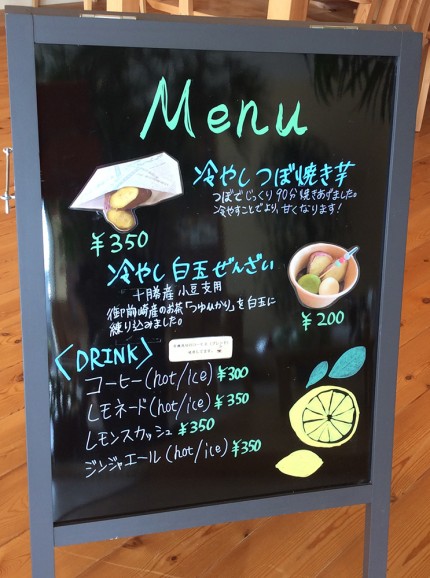 Menu
冷やしつぼ焼き芋
つぼでじっくり90分焼きあげました。
冷やすことでより、甘くなります!
¥350
冷やし白玉ぜんざい
十勝産 小豆支用
御前崎産のお茶「つゆひかり」を白玉に
練り込みました。
¥200
〈DRINK〉
コーヒー(hot/ice) ¥300
レモネード(hot/ice) ¥350
レモンスカッシュ ¥350
ジンジャエール(hot/ice) ¥350